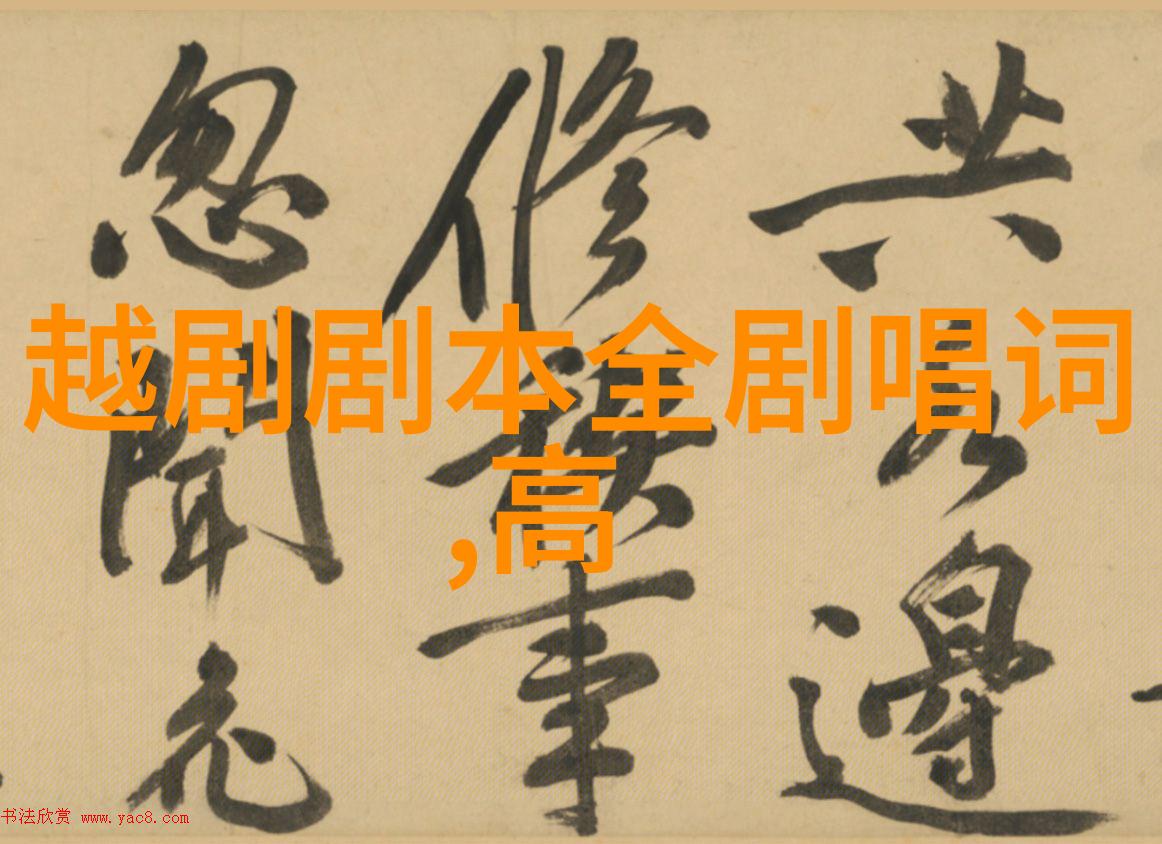 越剧剧本全剧唱词
,高
共邊
修事
忽聞
书法欣赏 www.yac8.com